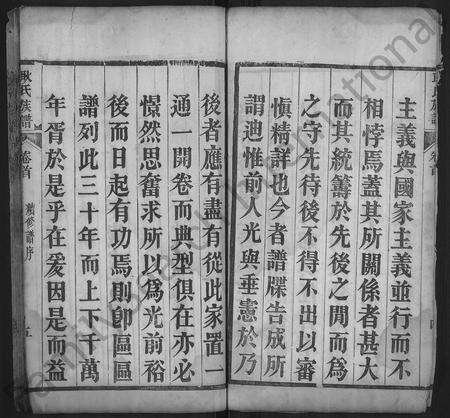 主義與國家主義並行而不
相悖焉蓋其所關係者甚大
而其統籌於先後之間而爲
之守先待後不得不出以審
愼精詳也今者譜牒告成所
謂迪惟前人光與垂憲於乃
後者應有盡有從此家置一
通一開卷而典型俱在亦必
憬然思奮求所以爲光前裕
後而日起有功焉則卽區區
譜列此三十年而上下千萬
年胥於是乎在爰因是而益
耿氏族譜 卷首 續修譜序 五